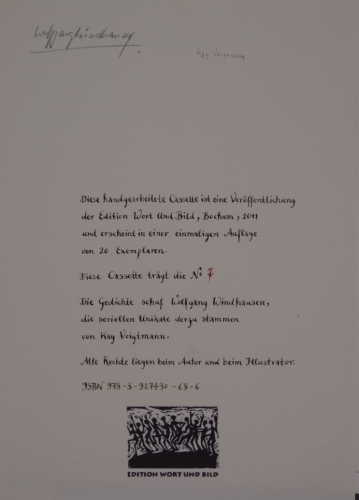 Wolfgang Windhausen
Kay Voigtmann
Diese handgearbeitete Cassette ist eine Veröffentlichung
der Edition Wort Und Bild, Bochum, 2011
und erscheint in einer einmaligen Auflage
von 20 Exemplaren.
Diese Cassette trägt die No 7
Die Gedichte schuf Wolfgang Windhausen,
die seriellen Unikate dazu stammen
von Kay Voigtmann.
Alle Rechte liegen beim Autor und beim Illustrator.
ISBN 978-3-927430-68-6
EDITION WORT UND BILD